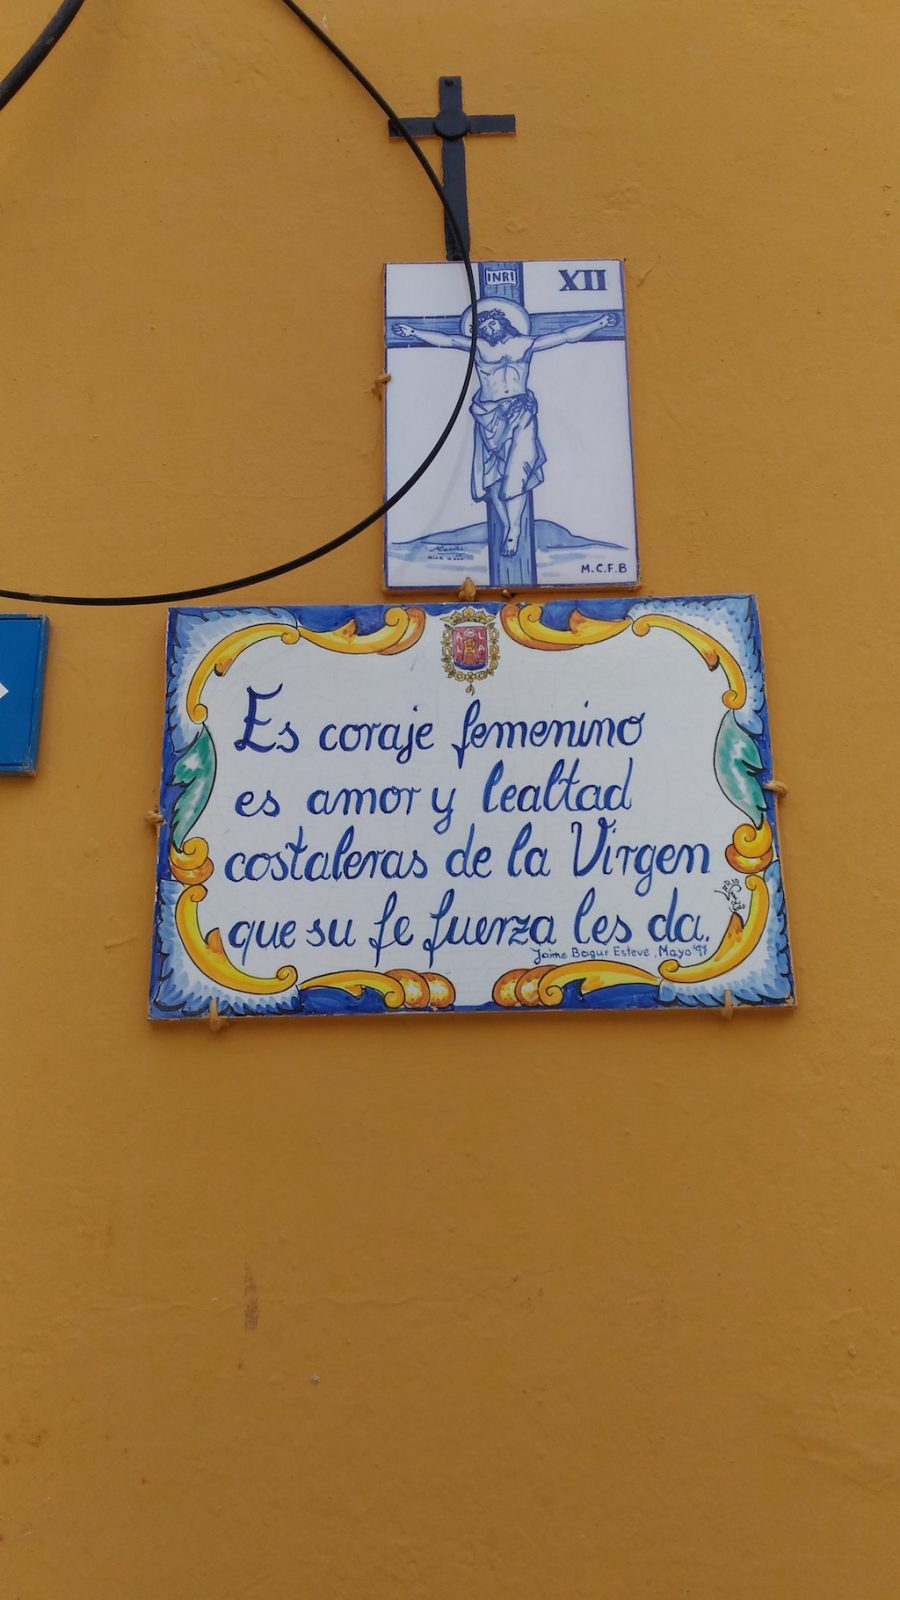 INRI
XII
M.C.F.B
Es coraje femenino
es amor y lealtad
costaleras de la Virgen
que su fe fuerza les da.
Jaime Bagur Esteve, Mayo '97